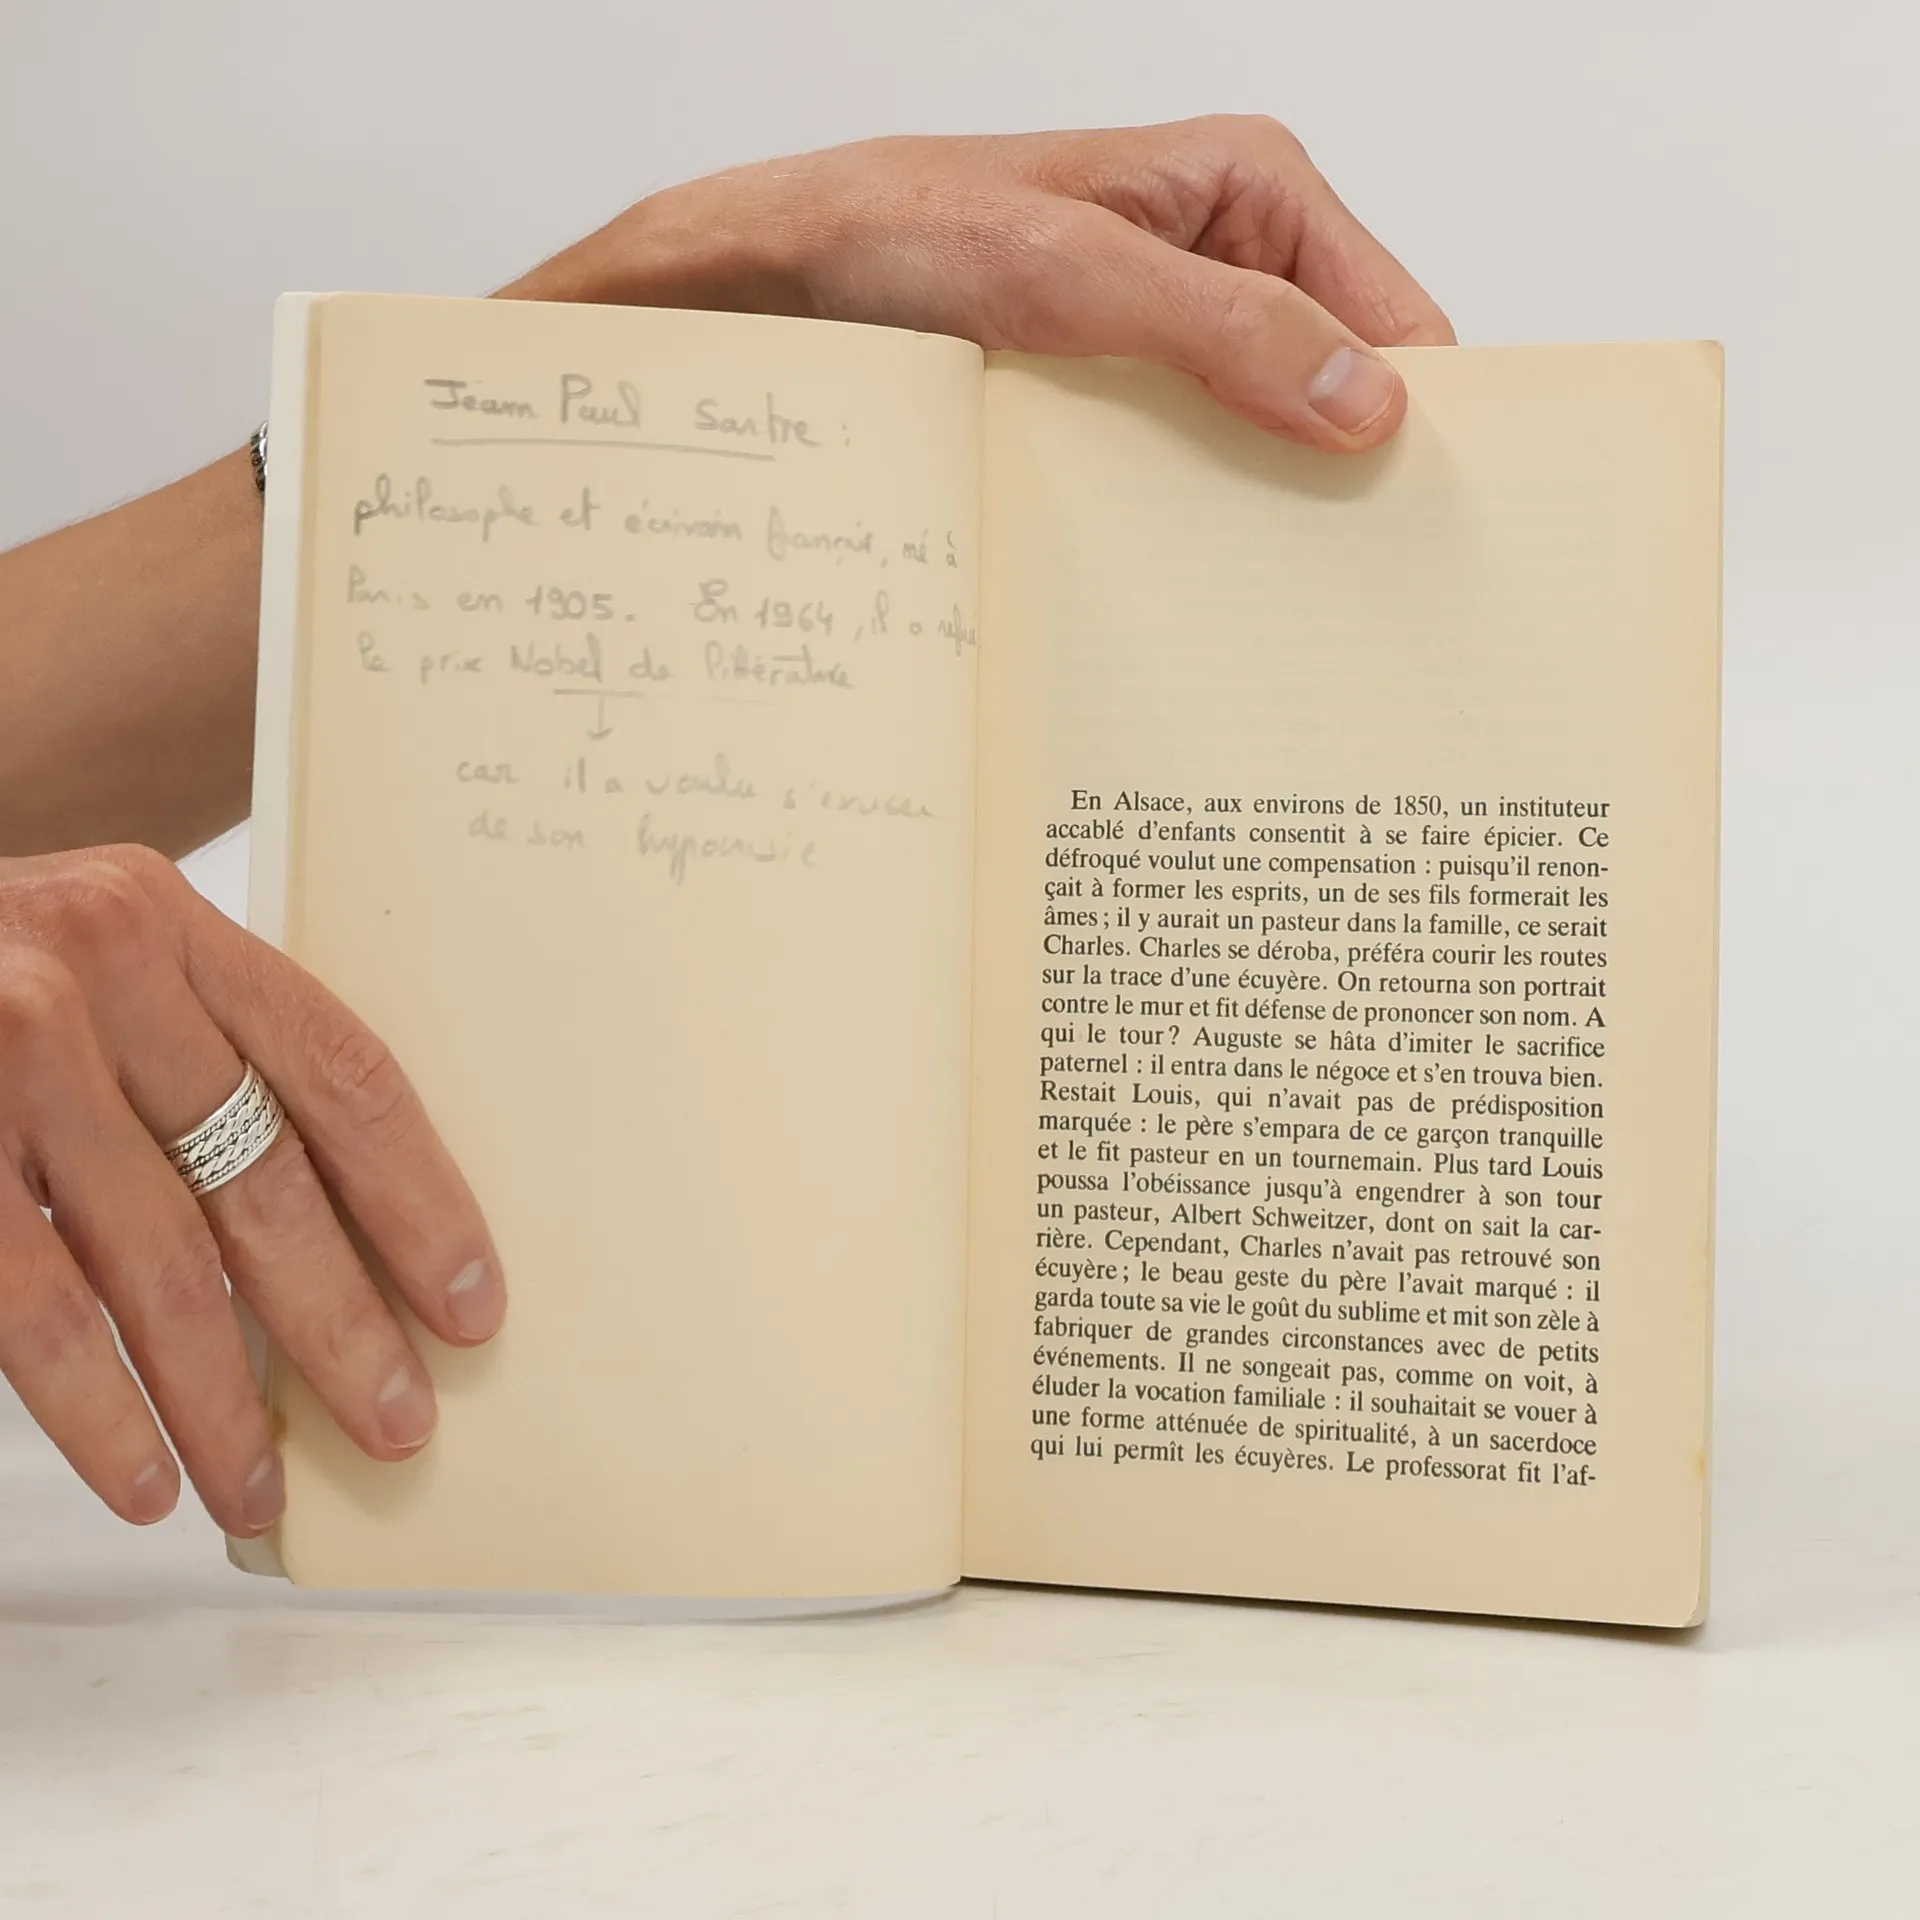 Jean Paul Sartre :
philosophe et écrivain français, né à
Paris en 1905. En 1964, il a refusé
le prix Nobel de littérature
↓
car il a voulu s'excuser
de son hypocrisie
En Alsace, aux environs de 1850, un instituteur
accablé d'enfants consentit à se faire épicier. Ce
défroqué voulut une compensation : puisqu'il renon-
çait à former les esprits, un de ses fils formerait les
âmes ; il y aurait un pasteur dans la famille, ce serait
Charles. Charles se déroba, préféra courir les routes
sur la trace d'une écuyère. On retourna son portrait
contre le mur et fit défense de prononcer son nom. A
qui le tour ? Auguste se hâta d'imiter le sacrifice
paternel : il entra dans le négoce et s'en trouva bien.
Restait Louis, qui n'avait pas de prédisposition
marquée : le père s'empara de ce garçon tranquille
et le fit pasteur en un tournemain. Plus tard Louis
poussa l'obéissance jusqu'à engendrer à son tour
un pasteur, Albert Schweitzer, dont on sait la car-
rière. Cependant, Charles n'avait pas retrouvé son
écuyère ; le beau geste du père l'avait marqué : il
garda toute sa vie le goût du sublime et mit son zèle à
fabriquer de grandes circonstances avec de petits
événements. Il ne songeait pas, comme on voit, à
éluder la vocation familiale : il souhaitait se vouer à
une forme atténuée de spiritualité, à un sacerdoce
qui lui permît les écuyères. Le professorat fit l'af-